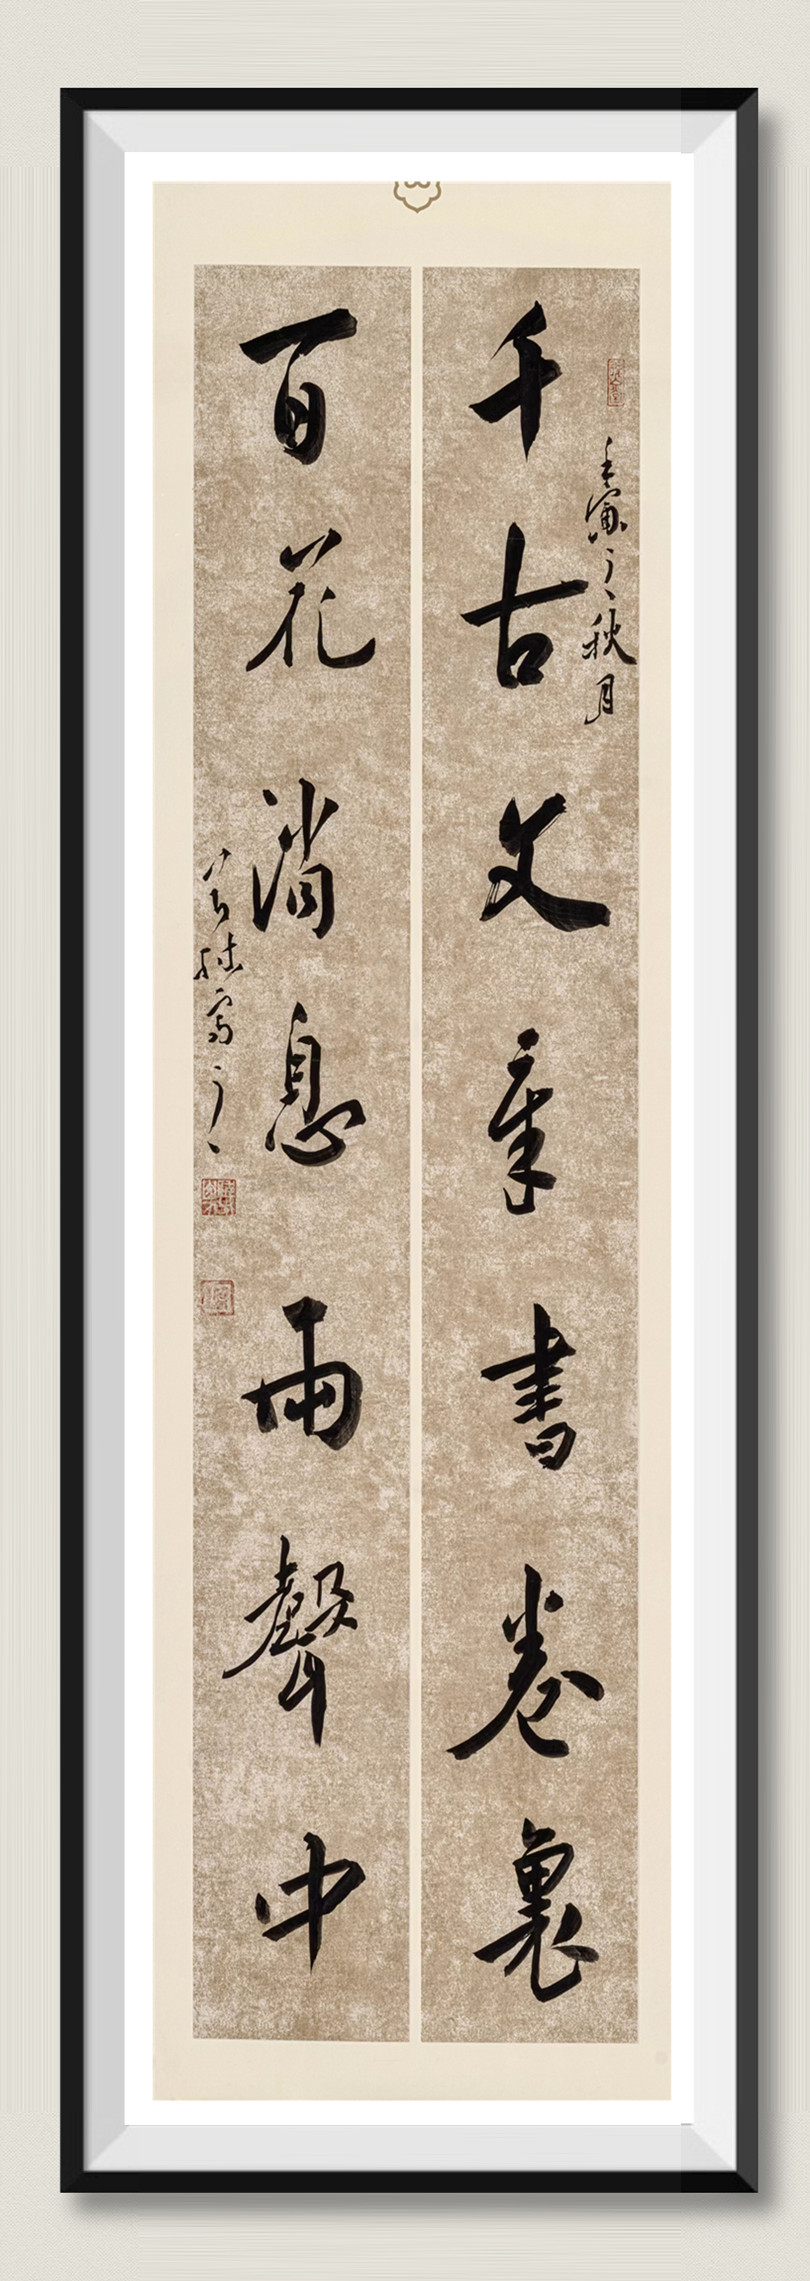 壬寅之秋月
千古文章書卷裏
百花消息雨聲中